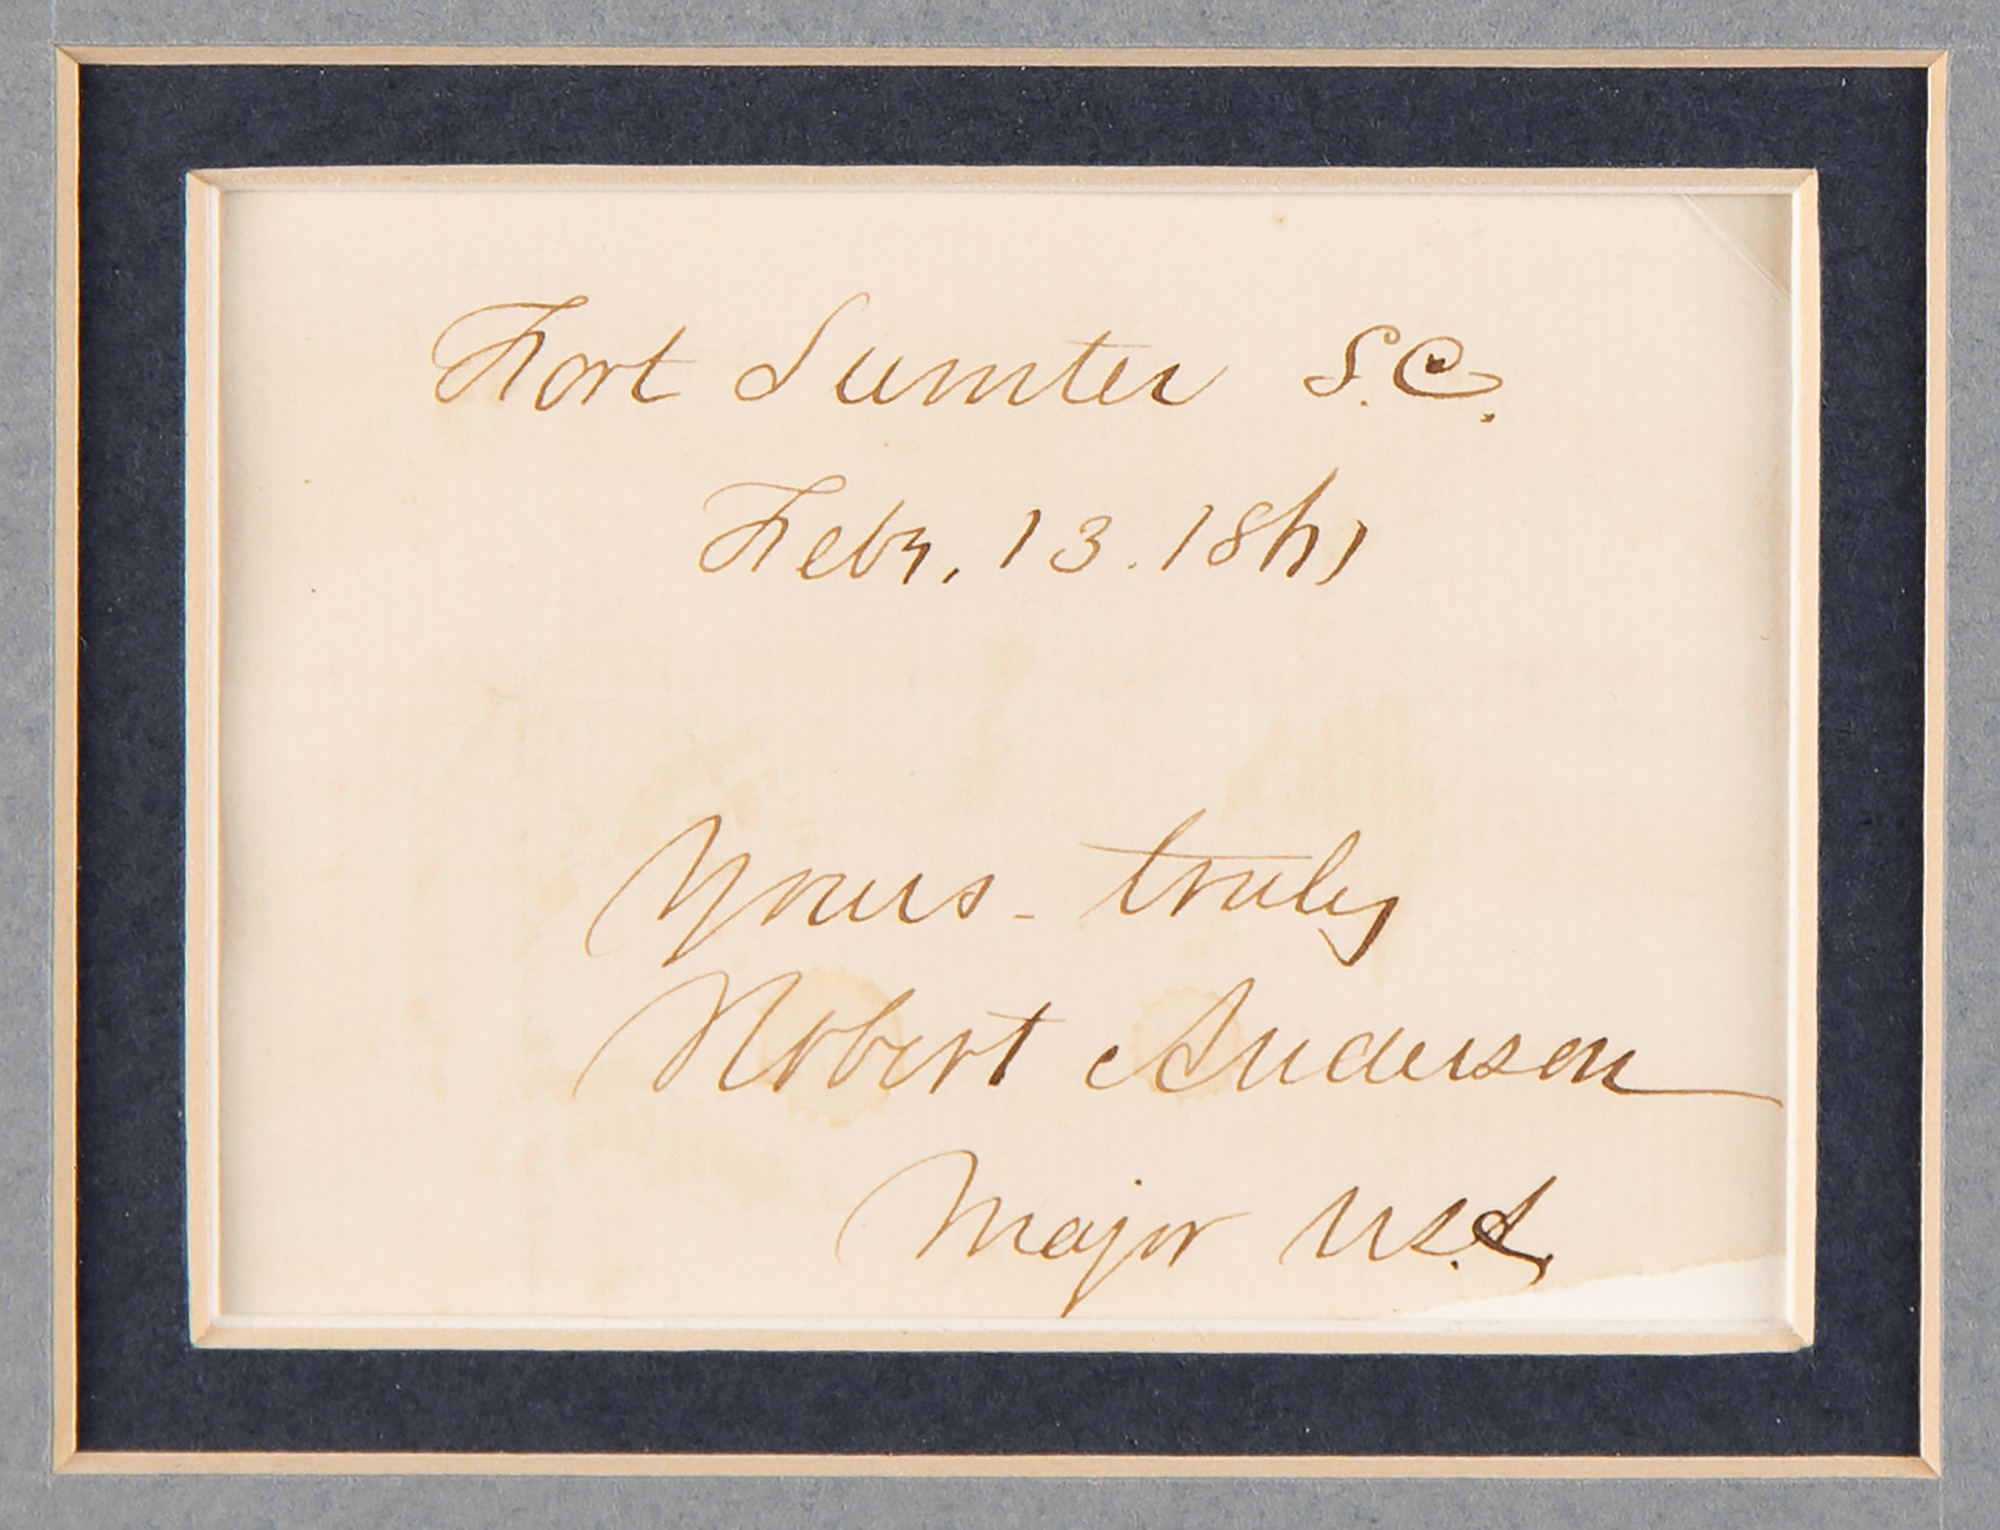 Fort Sumter S.C.
Feby, 13. 1861
Yours truly
Robert Anderson
Major U.S.A.